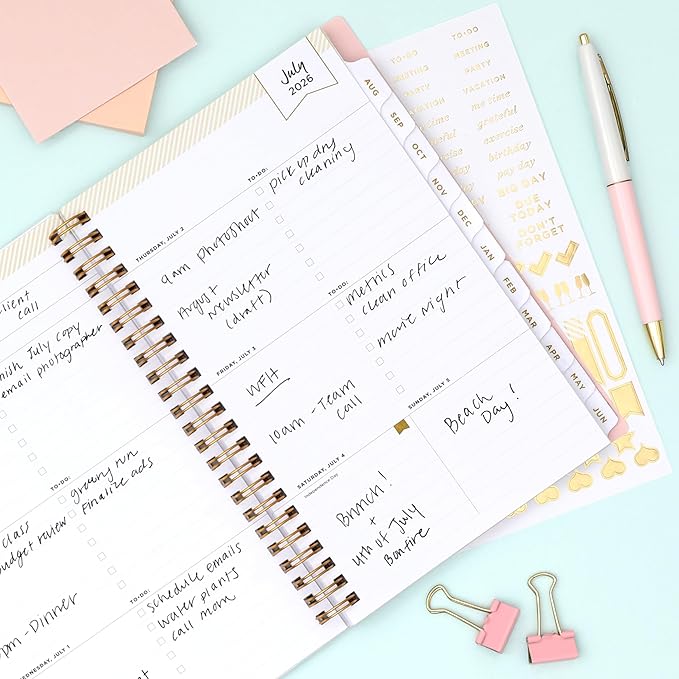 July
2026
TO-DO:
pick up dry
cleaning
THURSDAY, JULY 2
9am Photoshoot
August
Newsletter
(draft)
TO-DO:
metrics
clean office
movie night
FRIDAY, JULY 3
WFH
10am - Team
call
SATURDAY, JULY 4
Independence Day
Brunch!
+
4th of July
Bonfire
SUNDAY, JULY 5
Beach
Day!
client
call
nish July copy
email photographer
TO-DO:
grocery run
Finalize ads
class
budget review
TO-DO:
schedule emails
water plants
call mom
pm - Dinner
WEDNESDAY, JULY 1
AUG
SEP
OCT
NOV
DEC
JAN
FEB
MAR
APR
MAY
JUN
TO•DO
TO•DO
MEETING
PARTY
PARTY
VACATION
me time
grateful
exercise
birthday
pay day
BIG DAY
DUE
TODAY
DON'T
FORGET